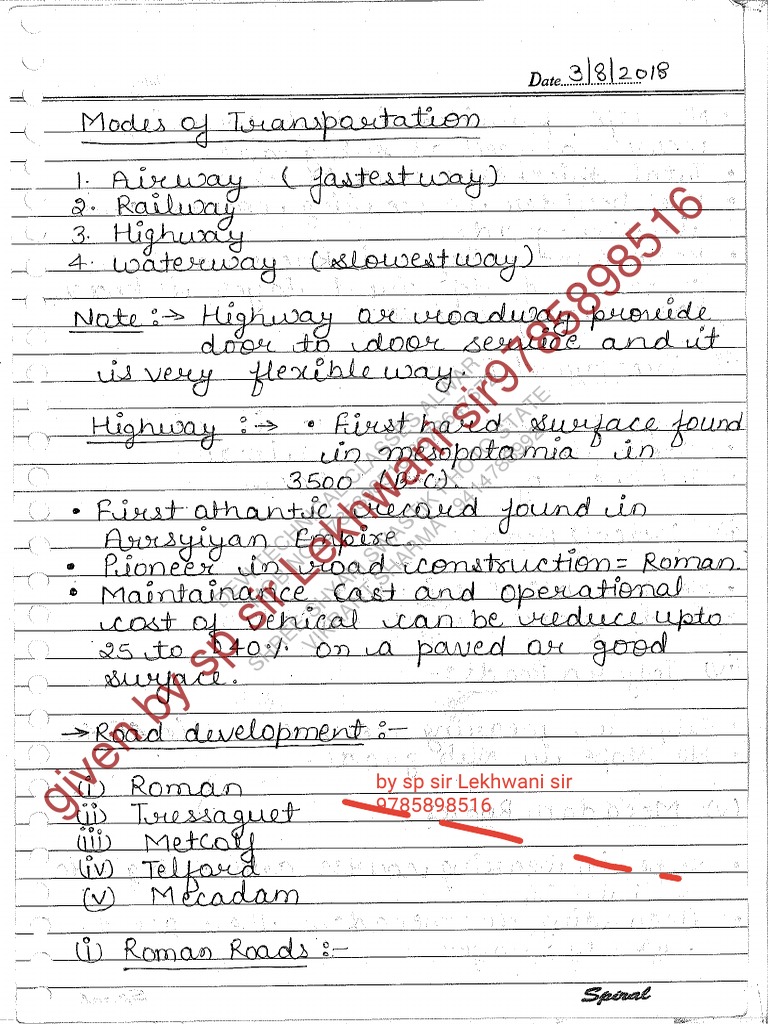 Date 3/8/2018
Modes of Transpartation
1. Airway ( fastest way)
2. Railway
3. Highway
4. Waterway (slowest way)
Note :→ Highway or roadway provide
door to door service and it
is very flexible way.
Highway :→ • First hard surface found
in mesopotamia in
3500 (B.C).
• First athantic record found in
Arrsyiyan Empire.
• Pioneer in road construction = Roman.
• Maintainance Cast and operational
cost of vehical can be reduce upto
25 to 240% on a paved or good
surface.
→ Road development :-
(i) Roman
by sp sir Lekhwani sir
(ii) Tressaguet
9785898516
(iii) Metcalf
(iv) Telford
(v) Mecadam
(i) Roman Roads :-
Spiral
given by sp sir Lekhwani sir9785898516